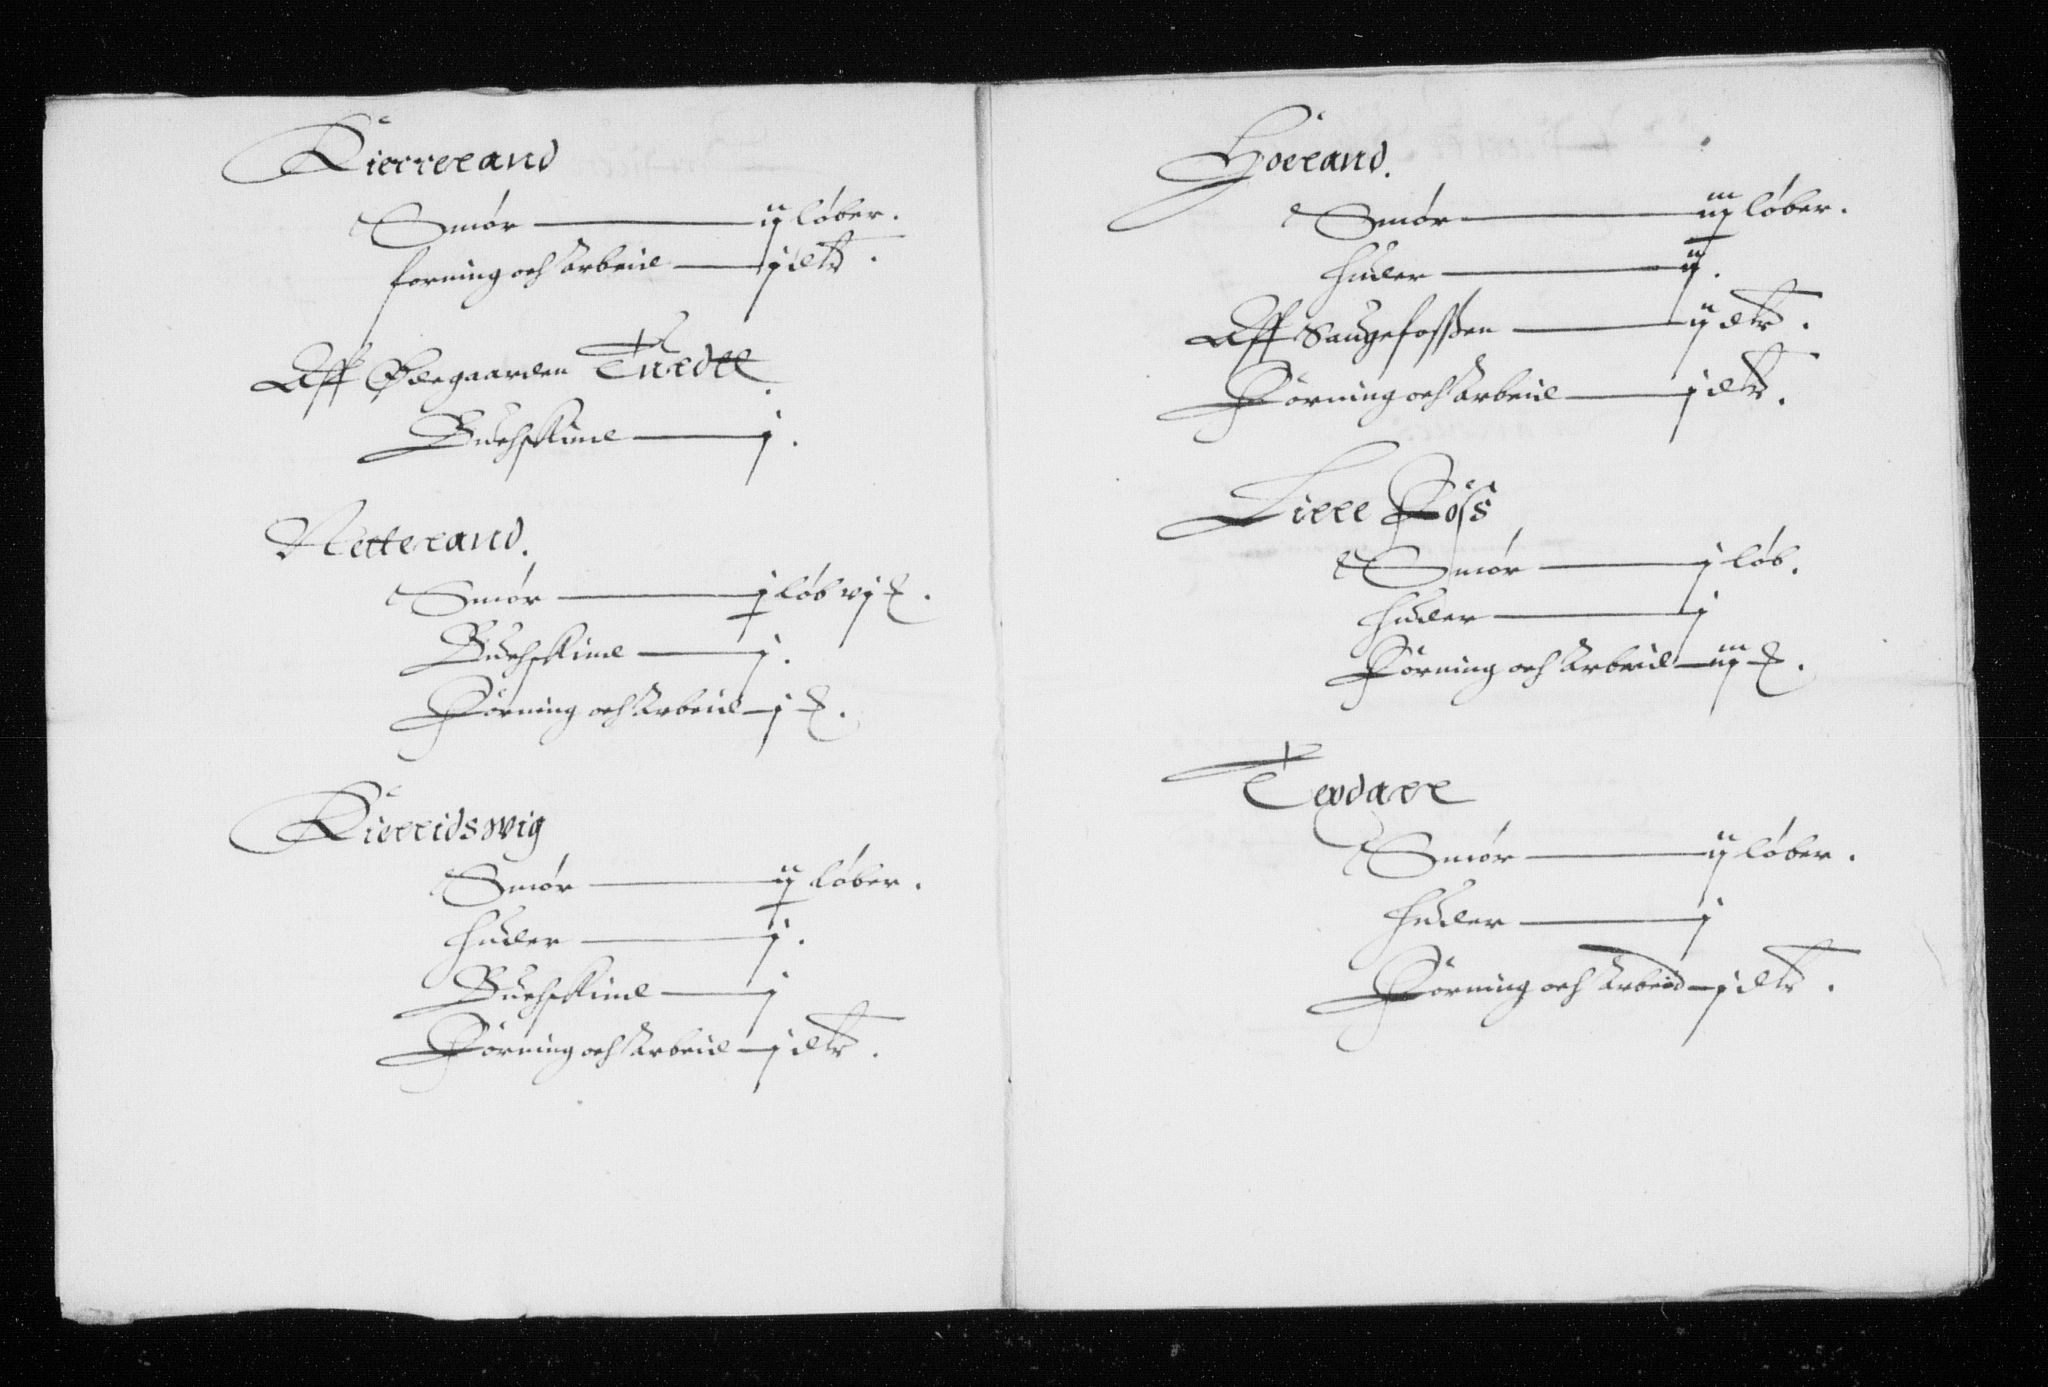 Kierreland
Smör ij löber.
forning och Arbeid j dlr.
Aff Ødegaarden Tuedtt
Buchskind j.
Netteland.
Smör j löb vj
Buchskind j.
Förning och Arbeid j
Kierridswig
Smör ij löber.
Huder j.
Buchskind j
Förning och Arbeid j dlr.
Höeland.
Smör iiij löber.
Huder ij.
Aff Saugefossen ij dlr.
Förning och Arbeid j dlr.
Liere Foss
Smör j löb.
Huder j
Förning och Arbeid iiij
Smör ij löber.
Huder j
Förning och Arbeid j dlr.